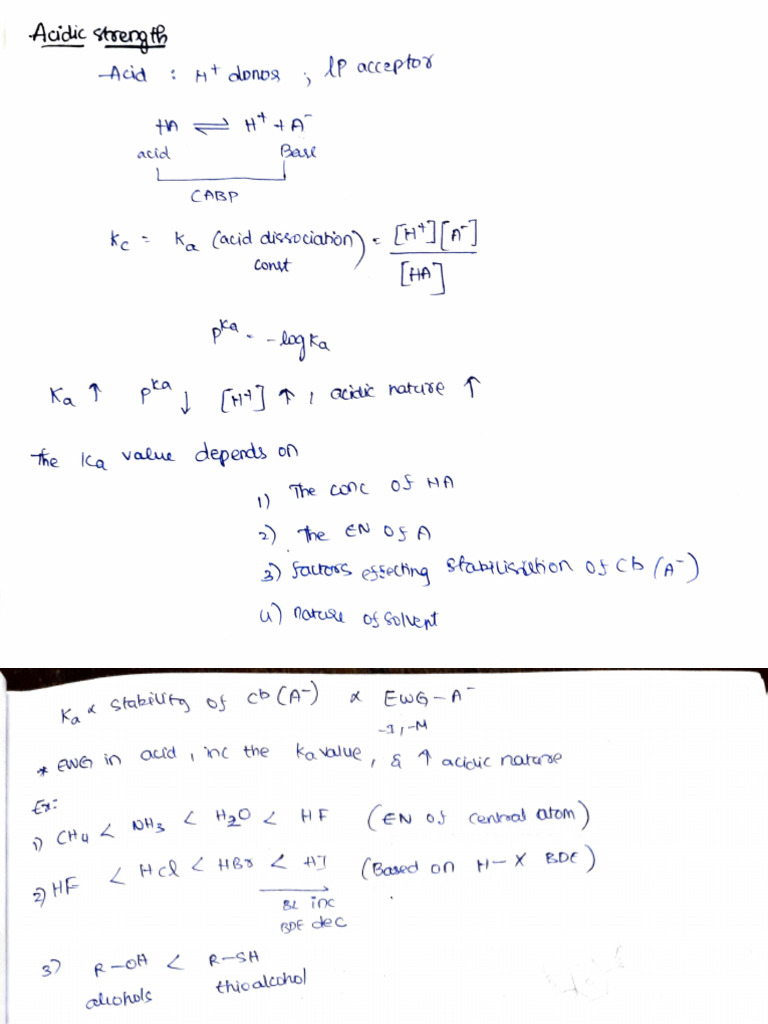 Acidic strength
Acid : H⁺ donor ; lP acceptor
HA ⇌ H⁺ + A⁻
acid Base
CABP
Kc = Ka (acid dissociation const) = [H⁺][A⁻] / [HA]
pKa = -log Ka
Ka ↑ pKa ↓ [H⁺] ↑ , acidic nature ↑
The Ka value depends on
1) The conc of HA
2) The EN of A
3) factors effecting stabilisation of Cb (A⁻)
4) nature of solvent
Ka ∝ stability of cb (A⁻) ∝ EWG-A⁻
-I, -M
* EWG in acid, inc the Ka value, & ↑ acidic nature
Ex:
1) CH4 < NH3 < H2O < HF (EN of central atom)
2) HF < HCl < HBr < HI (Based on H-X BDE)
BL inc
BDE dec
3) R-OH < R-SH
alcohols thioalcohol